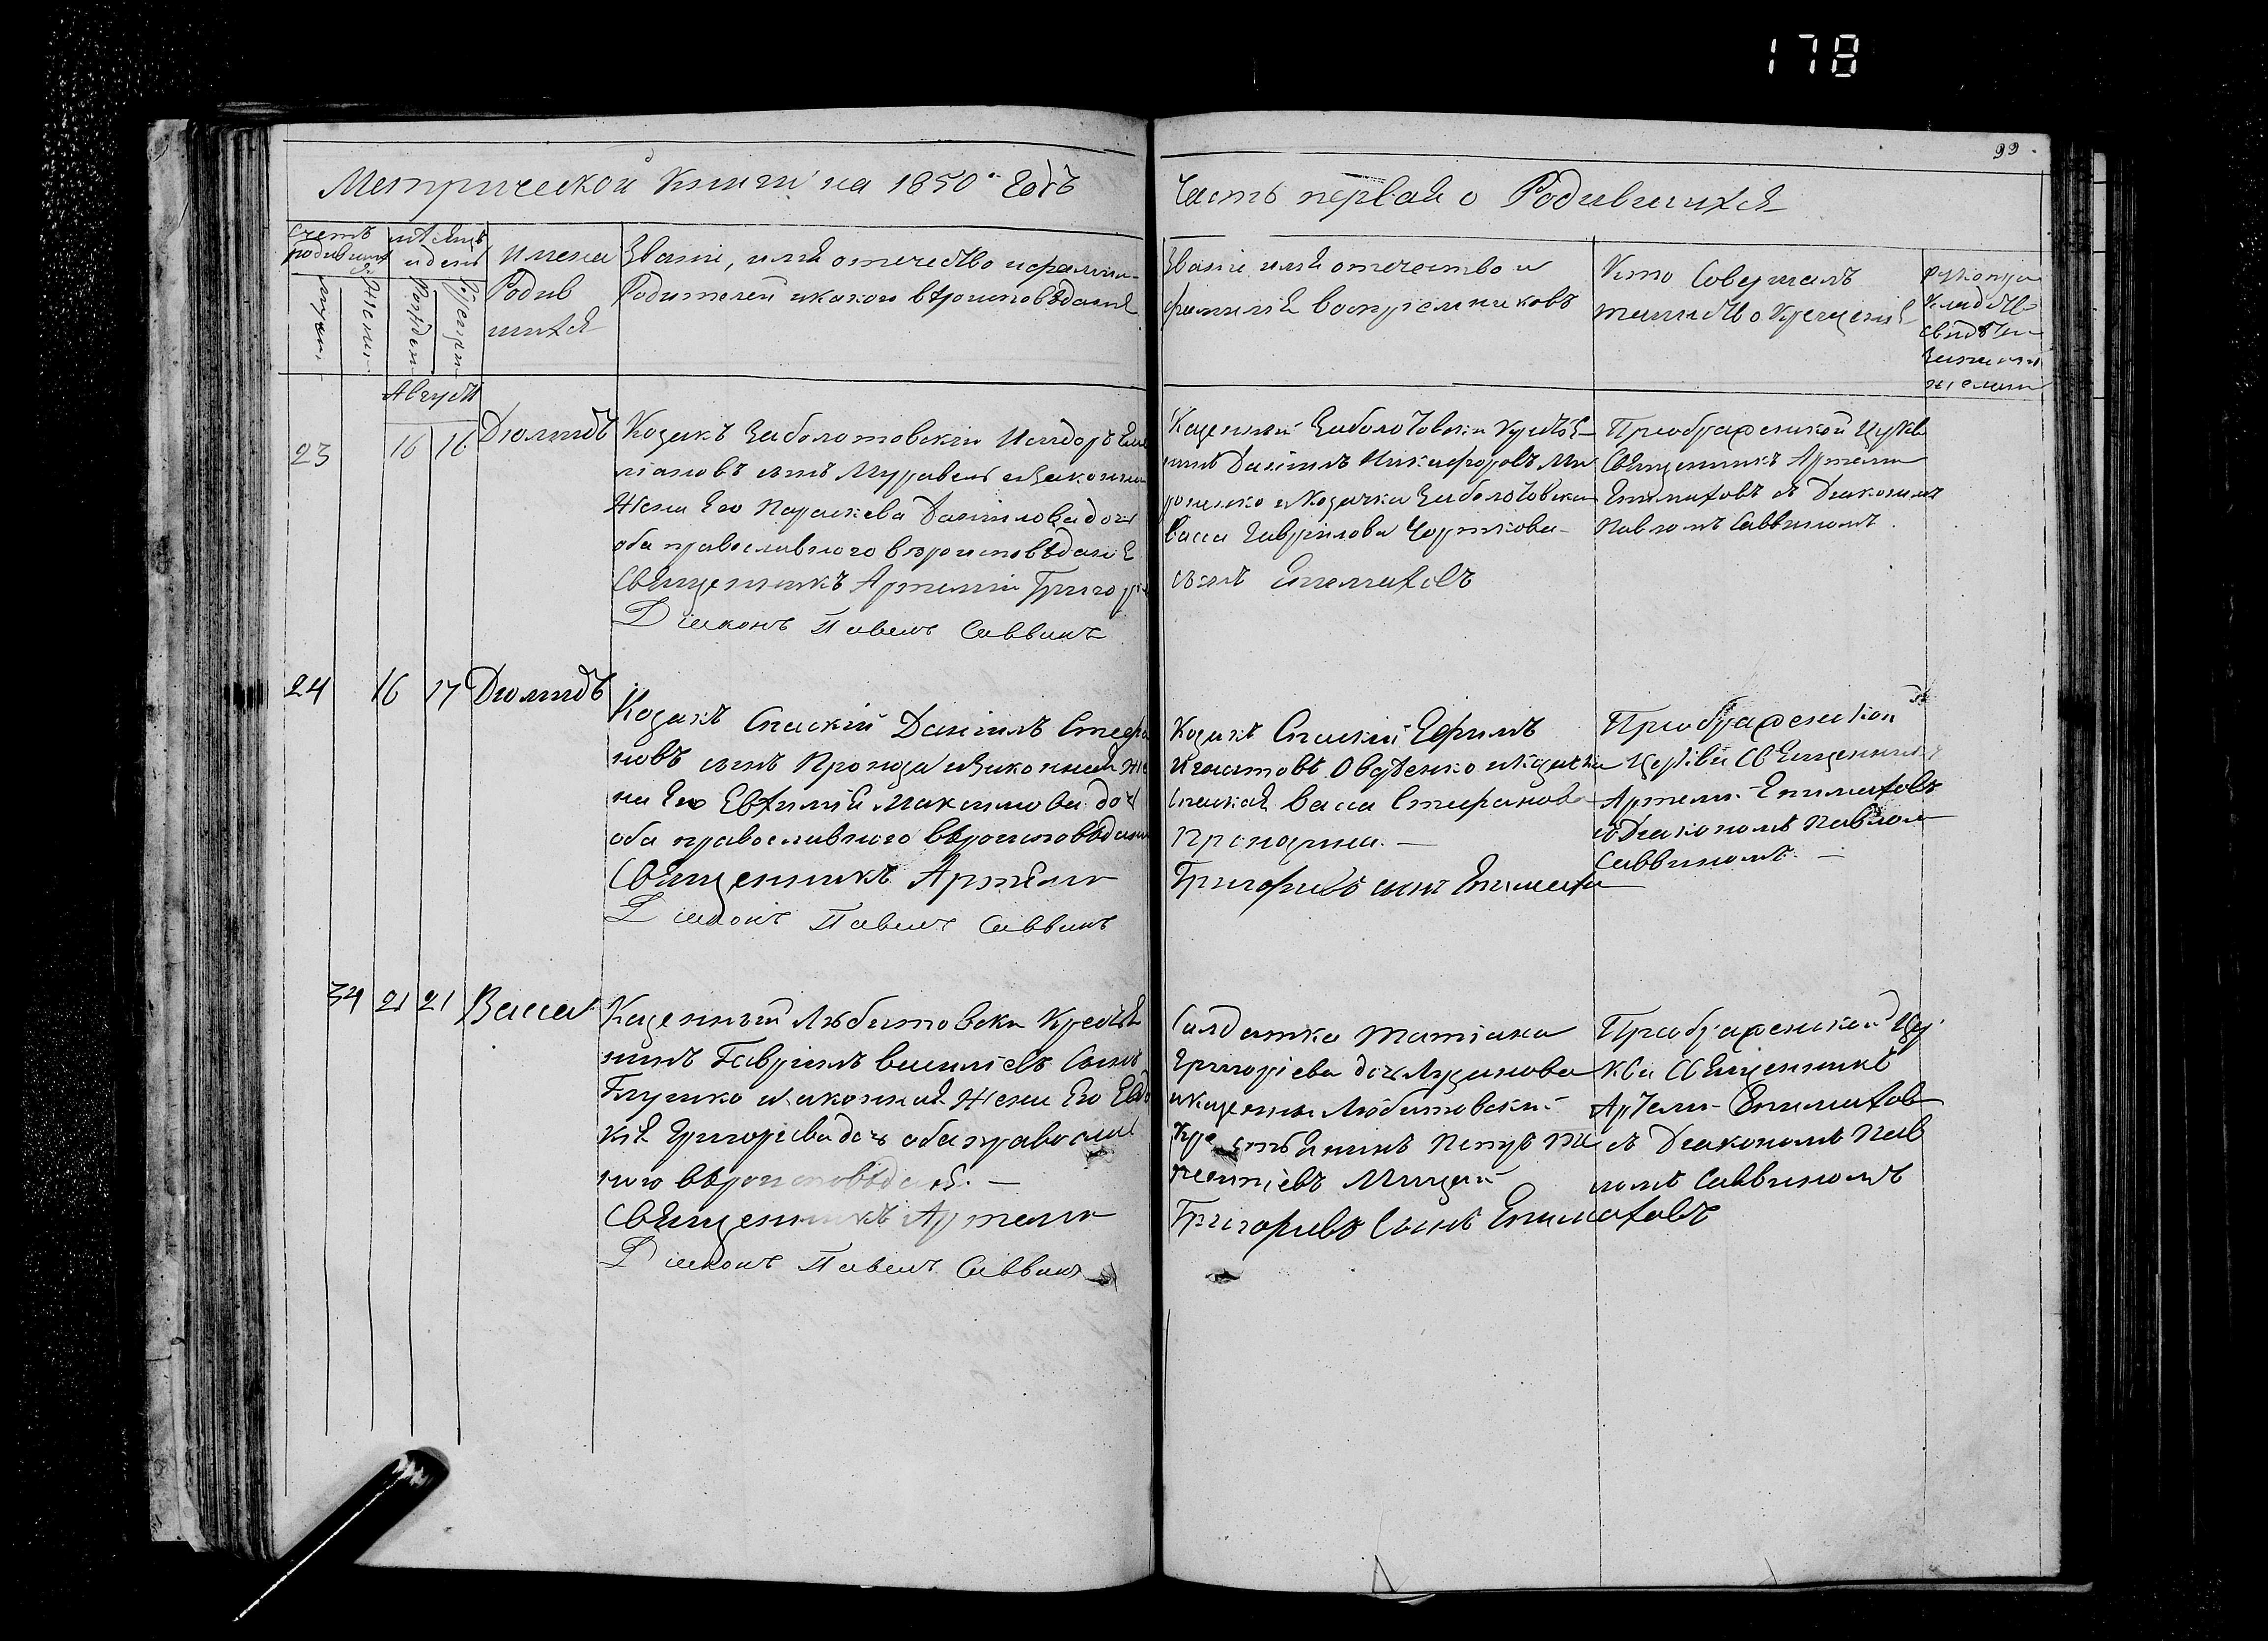 178
99
Метрической книги на 1850й Годъ
Часть первая о Родившихся
Счетъ родившихся
мѣсяцъ и день
Имена Родив шихся
Званіе, имя отечество и фамилія
Родителей и какого вѣроисповѣданія
Званіе имя отечество и
фамилія воспріемниковъ
Кто Совершалъ
таинство Крещенія
мужеск.
женск.
Рожден.
Крещен.
Августъ
23
16
16
Диомидъ
Козакъ Заболотовскій Исидоръ Еме
ліановъ сынъ Муравей и законная
Жена Его Параскева Даніилова дочь
оба православного вѣроисповѣданія
Священникъ Артемій Григорі
Діаконъ Павелъ Саввинъ
Казенный Заболотовски Крестья
нинъ Даніилъ Никифоровъ Ми
роненко и Козачка Заболотовска
Васса Гавріилова Чорткова
сынъ Епимаховъ
Преображенской Церкви
Священникъ Артеми
Епимаховъ съ Диакономъ
Павломъ Саввиномъ
24
16
17
Диомидъ
Козакъ Спаскій Даніилъ Стефа
новъ сынъ Пропода и Законная Же
на Его Евхимія Максимова дочь
оба православного вѣроисповѣданія
Священникъ Артеми
Діаконъ Павелъ Саввинъ
Козакъ Спаскій Ефимъ
Игнатовъ Овдѣенко и Козачка
Спаская Васса Стефанова
Григориевъ сынъ Епимахо
Преображенской
Церкви Священникъ
Артеми Епимаховъ
съ Диакономъ Павлом
Саввиномъ
34
21
21
Васса
Казенный Любитовски Крестья
нинъ Гавріилъ Василіевъ Сынъ
Глушко и законная Жена Его Евдо
кія Григоріева дочь оба православ
ного вѣроисповѣданія
Священникъ Артеми
Діаконъ Павелъ Саввинъ
Салдатка Татіана
Григоріева дочь
и казенны Любитовский
Крестьянинъ Петръ
Григориевъ Сынъ Епимаховъ
Преображенской Цер
кви Священникъ
Артеми Епимахов
съ Диакономъ Пав
ломъ Саввиномъ